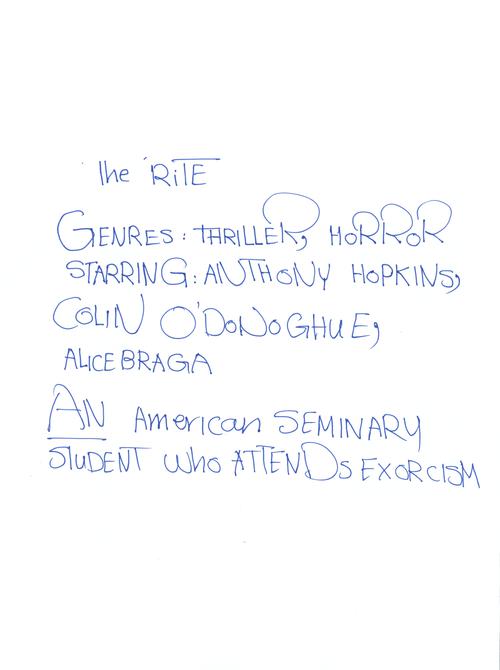 The RiTE
GENRES: THRILLER, HoRRoR
STARRING: ANTHoNY HOPKINS,
COLIN O'DoNoGHUE,
ALICE BRAGA
AN American SEMINARY
STUDENT Who ATTENDS EXORCISM